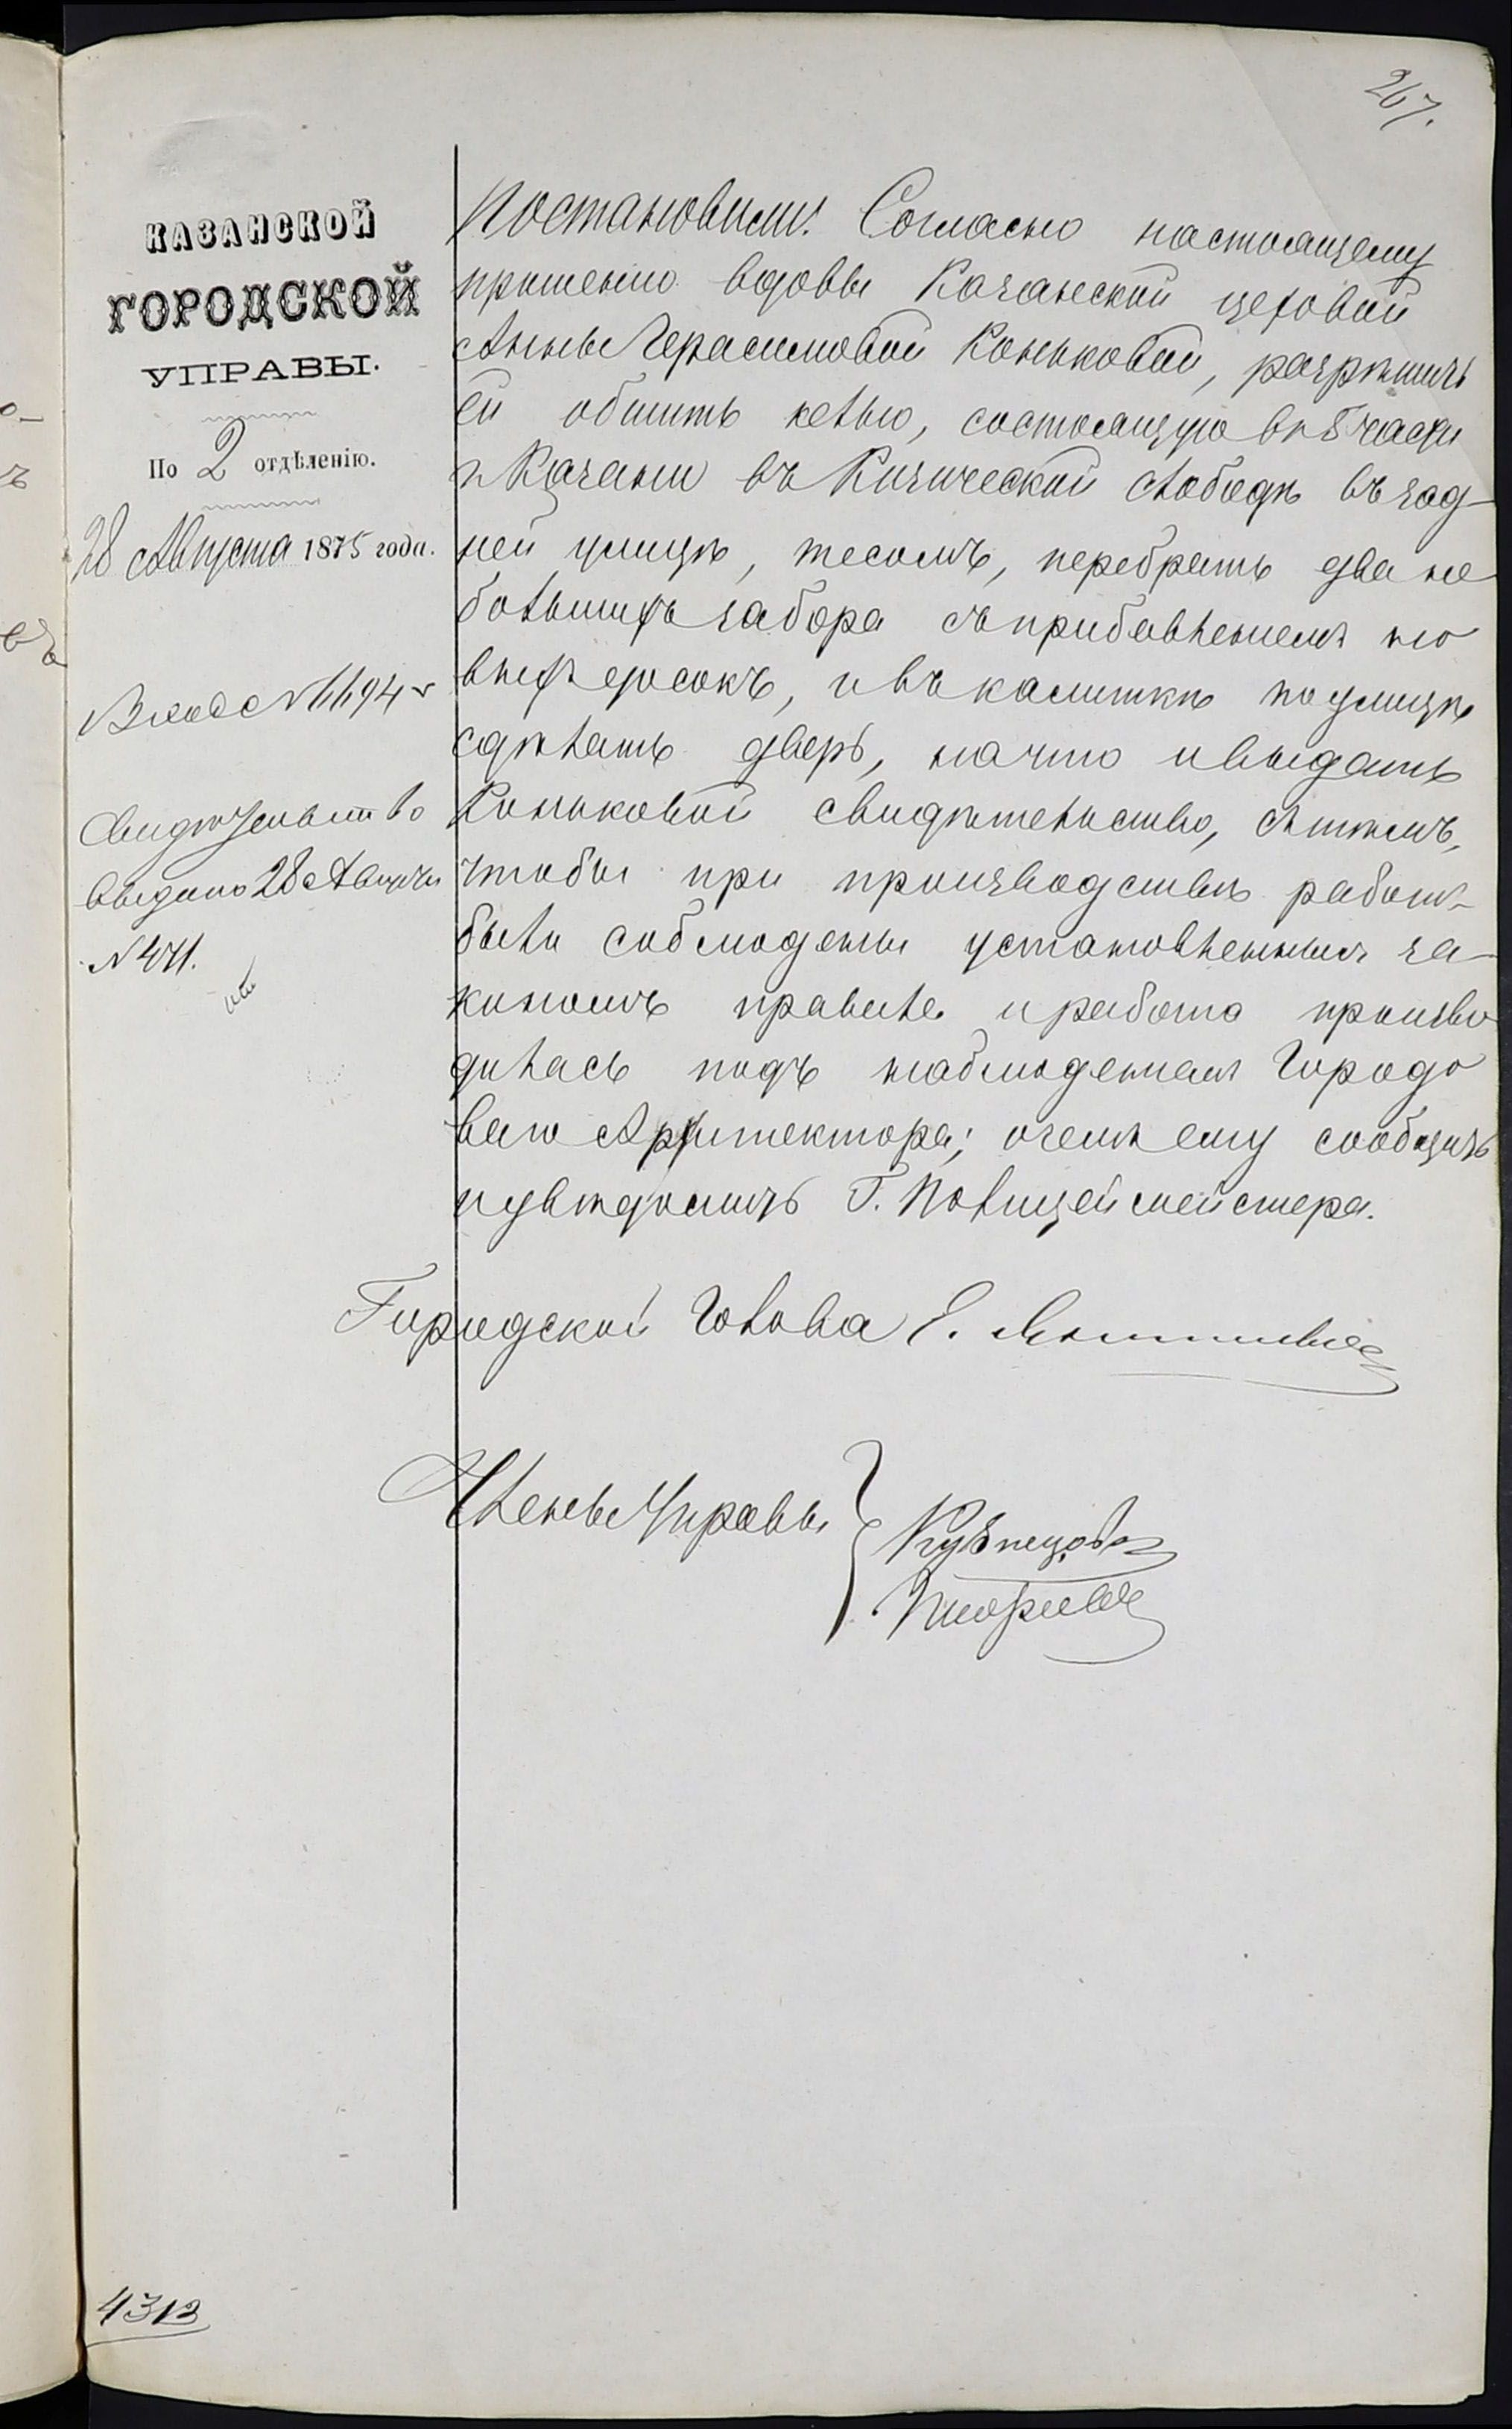 267.
КАЗАНСКОЙ
ГОРОДСКОЙ
УПРАВЫ.
По 2 отдѣленію.
28 Августа 1875 года.
Вход № 1194
Свидѣтельство
выдано 28 Августа
№ 471.
Постановили: Согласно настоящему
прошенію вдовы Казанской цеховой
Анны Герасимовой Коньковой, разрѣшить
ей обшить келью, состоящую въ 5 части
г. Казани въ Кизической слободѣ въ зад-
ней улицѣ, тесомъ, перебрать два не
большихъ забора съ прибавленіемъ но
выхъ досокъ, и въ калиткѣ по улицѣ
сдѣлать дверь, на что и выдать
Коньковой свидѣтельство, съ тѣмъ,
чтобы при производствѣ работ-
были соблюдены установленныя за-
кономъ правила и работа произво
дилась подъ наблюденіемъ Городо
ваго Архитектора; о чемъ ему сообщить
и увѣдомить Г. Полицеймейстера.
Городской Голова Е.
Члены Управы
Кузнецовъ
4313